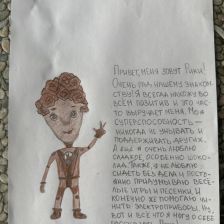 Привет, меня зовут Рики!
Очень рад нашему знаком-
ству! Я всегда нахожу во
всём позитив и это час-
то выручает меня. Моя
суперспособность —
никогда не унывать и
поддерживать других.
А ещё я очень люблю
сладкое, особенно шоко-
лад. Также, я не люблю
сидеть без дела и посто-
янно придумываю весе-
лые игры и песенки. И
конечно же помогаю чи-
нить электроприборы. Ну,
вот и всё что я могу о себе